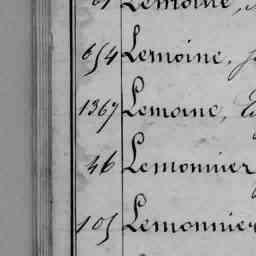 Lemoine,
654 Lemoine,
1367 Lemoine,
46 Lemonnier
105 Lemonnier